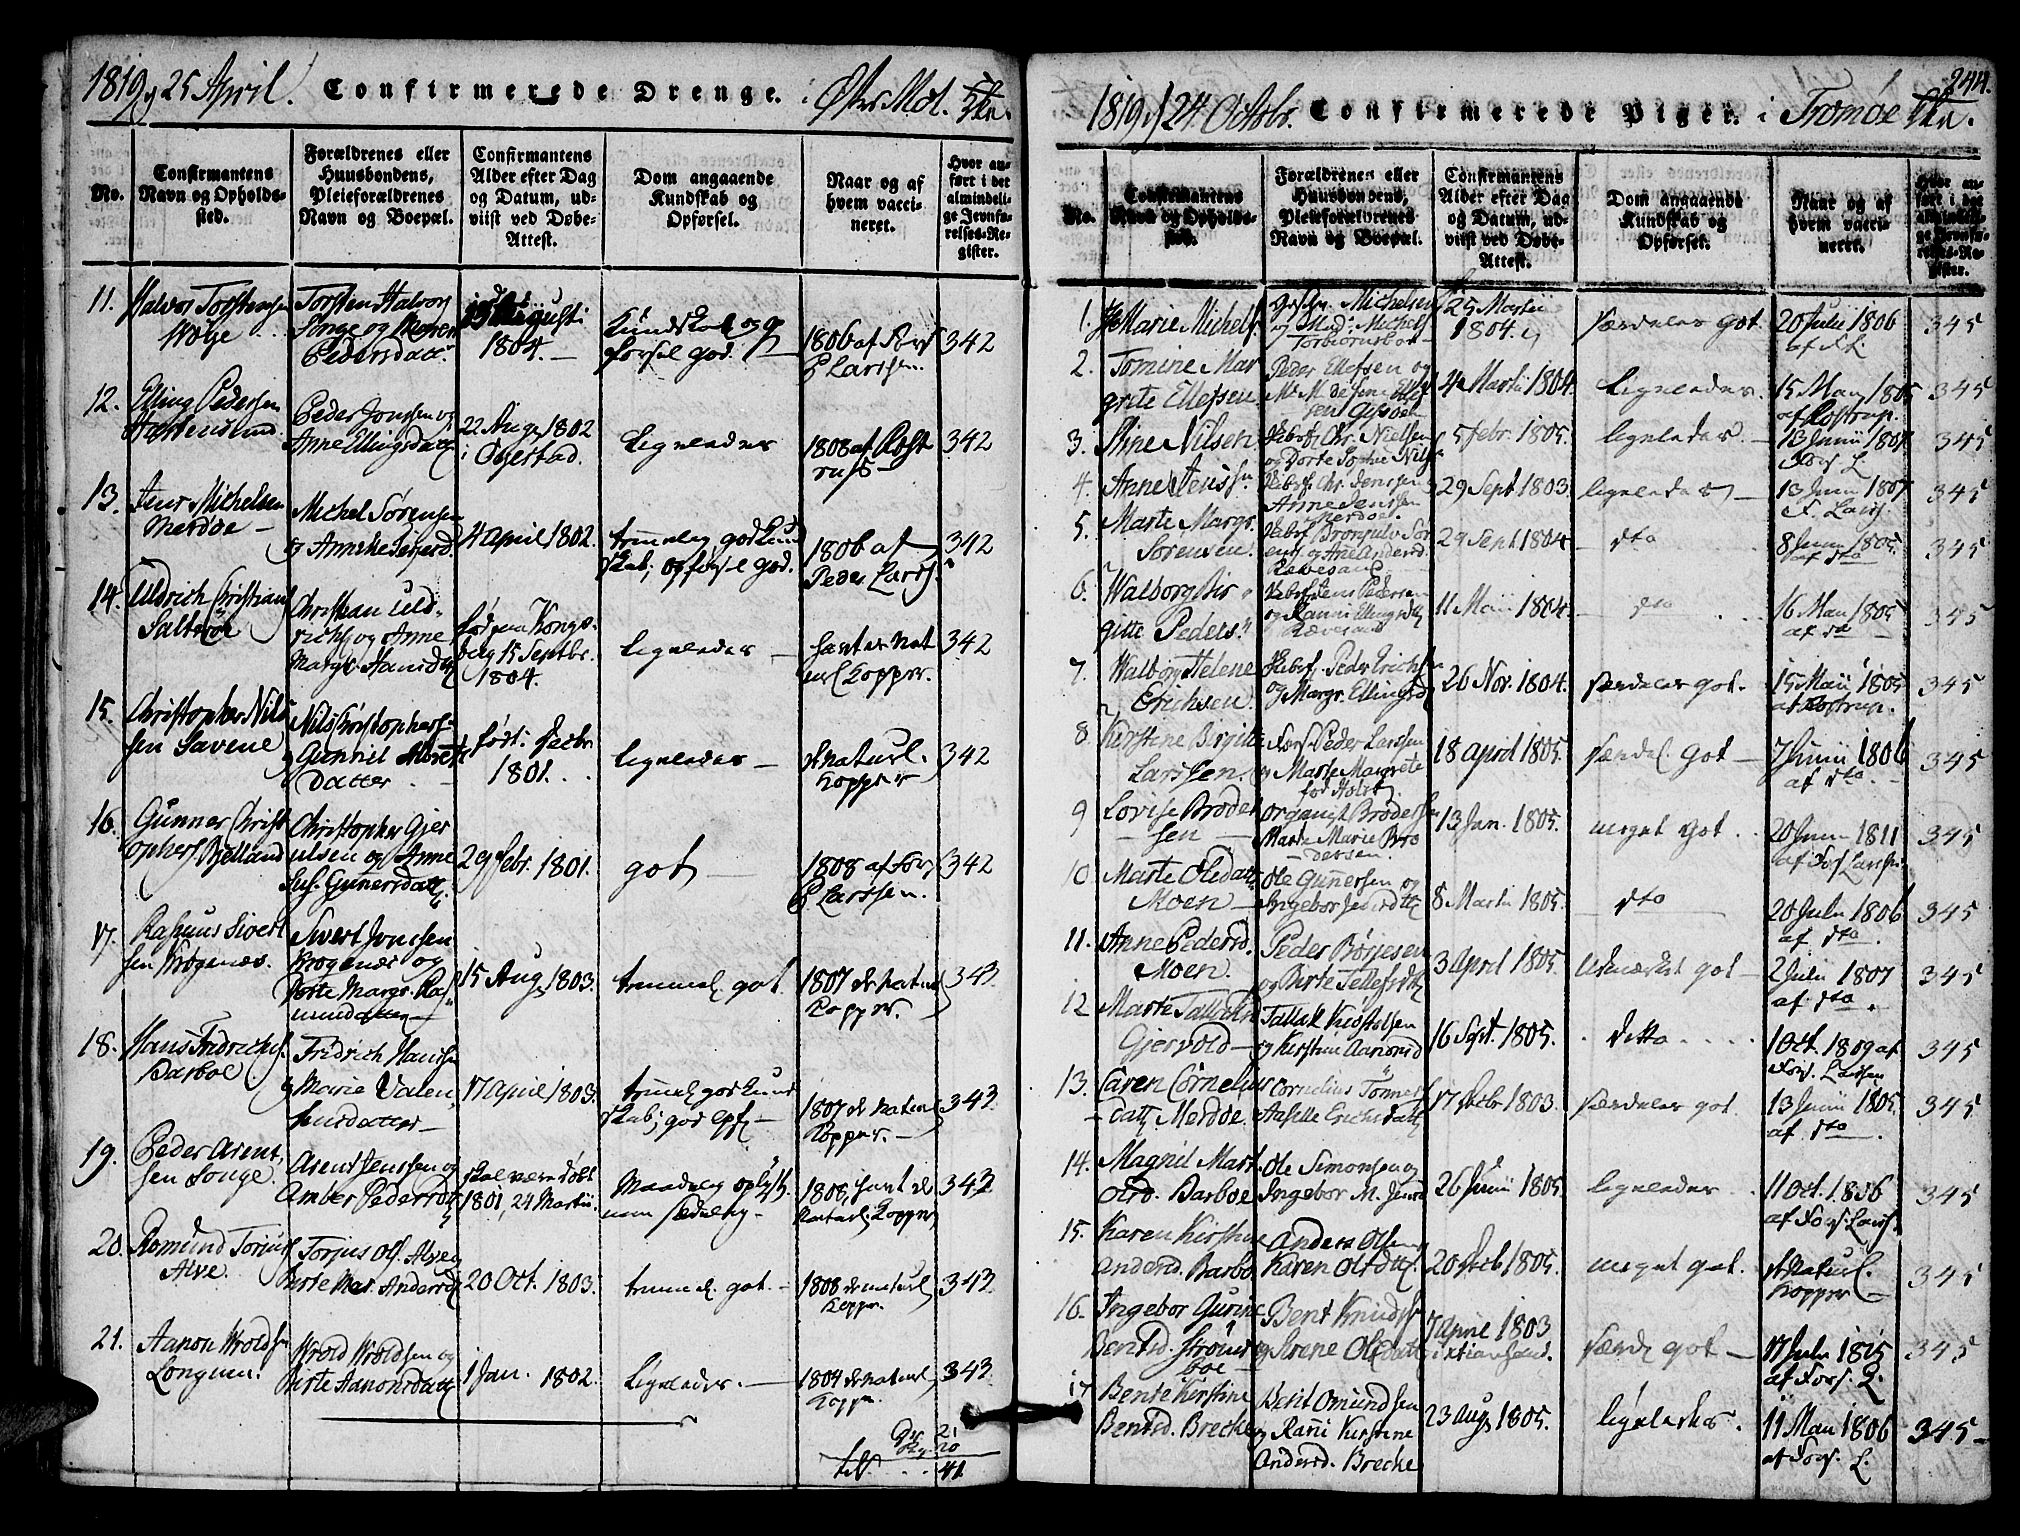 1819, 25 April. Confirmerede Drenge. i Øster Mol.
No.
Confirmantens
Navn og Opholds-
sted.
Forældrenes eller
Huusbondens,
Pleieforældrenes
Navn og Boepæl.
Confirmantens
Alder efter Dag
og Datum, ud-
viist ved Døbe-
Attest.
Dom angaaende
Kundskab og
Opførsel.
Naar og af
hvem vacci-
neret.
Hvor an-
ført i det
almindeli-
ge Jevnfø-
relses-Re-
gister.
11. Halvor Torstensen
Torsten Halvors
Songe og Maren
Pedersdatt.
Augusti
1804.
Kundskab og op
forsel god.
1806 af Fors
P Larssen.
342
12. Elling Pedersen
Peder Jonssen og
Anne Ellingsdatt
22 Aug 1802
i Øyestad.
Ligeledes
1808 af Rost
rup
342
13. Jens Michelsen
Merdøe
Michel Sørensen
4 April 1802.
temmelig god Kund
skab, opførsel god.
1806 af
Peder Larss.
342
14. Uldrich Christians
Salterøe
Christian Uld-
richs og Anne
Margr. Hansd
fød paa Kongs-
berg 15 Septbr.
1804.
Ligeledes
havt de Nat
url Kopper.
342
15. Christopher Nils
sen Savene
Nils Christophers
og Gunnil
Datter
født: Decbr
1801.
ligeledes
d Naturl.
Kopper
342
16. Gunner Christ
ophers Bjelland
Christopher Gjer
ulsen og Anne
Sus. Gunersdatt
29 Febr. 1801.
got
1808 af Fors
P. Larssen.
342
17. Rasmus Sivert
sen Krøgenæs.
Sivert Jonssen
Krøgenæs og
Dorte Margr. Ras
musdatter
15 Aug 1803.
temmel. got.
1807 de natur
Kopper.
343
18. Hans Fridrichs.
Barboe.
Fridrich Hanssen
og Marie Valen
tinsdatter
17 April 1803.
temmel. god Kund
skab; god Opf.
1807 de natur
Kopper.
343
19. Peder Arent
sen Songe.
Arent Jenssen og
Amber Pedersd
skal være født
1801, 24 Martii.
Maadelig oplyst,
1808, havt de
Naturl. Kopper
343
20. Romund Torjus
Alve.
Torjus Ols. Alve og
Birte Mar. Andersd
20 Oct. 1803.
temmel. got.
1808 de naturl
Kopper.
343
21. Aanon Wroldsen
Longum.
Wrold Wroldsen og
Birte Aanonsdatt
1 Jan. 1802.
Ligeledes.
1804 de Naturl
Kopper
343
21
20
41
244.
1819, 24 Octobr. Confirmerede Piger. i Tromøe
No.
Confirmantens
Navn og Opholds-
sted.
Forældrenes eller
Huusbondens,
Pleieforældrenes
Navn og Boepæl.
Confirmantens
Alder efter Dag
og Datum, ud-
viist ved Døbe-
Attest.
Dom angaaende
Kundskab og
Opførsel.
Naar og af
hvem vacci-
neret.
Hvor an-
ført i det
almindeli-
ge Jevnfø-
relses-Re-
gister.
1. Marie Michels
Michelsen
og Mad: Michels
25 Martii
1804.
særdeles got
20 Julii 1806
345
2. Tomine Mar
grete Ellefsen.
Peder Ellefsen og
4 Martii 1804.
Ligeledes.
15 Maii 1805
af Rostrup.
345
3. Stine Nilsen
Chr. Nielsen
og Dorte Sophie Nils
5 Febr. 1805.
ligeledes.
13 Junii 1807
Fors L.
345
4. Anne Jenss.
Chr. Jenssen
Anne Jenssen
Merdøe
29 Sept 1803.
ligeledes
13 Juni 1807
F. Larss.
345
5. Marte Margr.
Sørensen.
Bronjulv Sør
ens og Ane Andersd
Revesand
29 Sept 1804
dto
8 Juni 1805
af dto
345
6. Walborg Bir
gitte Peders.
Jens Pedersen
og Ranni Ellingsd
Rævesand
11 Maii 1804.
dto
16 Mai 1805
af dto
345
7. Walborg Helene
Erichsen
Peder Erichsen
og Margr. Ellingsd
26 Nov. 1804.
særdeles got.
15 Maii 1805
af Rostrup.
345
8. Kirstine Birgitte
Larssen.
Fors. Peder Larssen
og Marte Margrete
fød Holst
18 April 1805.
særdel. got
7 Junii 1806
af dto
345
9 Lovise Broder
sen
Organist Brodersen
Marte Marie Bro
dersen.
13 Jan. 1805.
meget got
20 Juni 1811
af Fors Larssen
345
10 Marte Oledatt
Moen
Ole Gunersen og
Ingebor Jensdtt
8 Martii 1805.
dto
20 Juli 1806
af dto.
345
11. Anne Pedersd.
Moen.
Peder Børjesen
og Birte Tellefsd
3 April 1805.
Udmærket got
2 Julii 1807
af dto.
345
12 Marte Tallaksd
Gjervold
Tallak Kistolsen
og Kirstine Aanonsd
16 Sept. 1805.
detto
1 Oct. 1809 af
Fors. Larssen
345
13. Caren Cornelius
datt, Merdøe.
Cornelius Tönnes
Aaselle Erichsdatt
17 Decbr 1803.
særdeles got.
13 Junii 1805.
af dto
345
14. Magnil Mart.
Olsd. Barboe
Ole Simonsen og
Ingebor M. Jensd
26 Junii 1805
ligeledes
11 Oct. 1806
af Fors. Larss.
345
15. Karen Kirstine
Andersd. Barbo
Anders Olsen
Karen Olsdtt.
20 Decb 1805.
meget got.
d Naturl.
Kopper
345
16. Ingebor Gurine
Bentsd. Strøms
boe
Bent Knuds
og Arene Olsdatt
7 April 1803
i Xtiansand.
særd. got
17 Juli 1815
af Fors. L.
345
17 Bente Kirstine
Bentsd. Brecke
Bent Omundsen
og Rani Kirstine
Andersd. Brecke
23 Aug 1805.
ligeledes.
11 Mai 1806
af Fors. L.
345